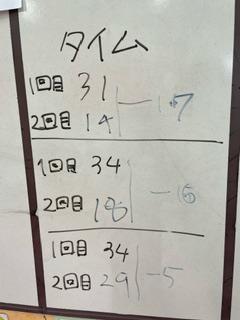 タイム
1回目 31
2回目 14 -17
1回目 34
2回目 18 -16
1回目 34
2回目 29 -5